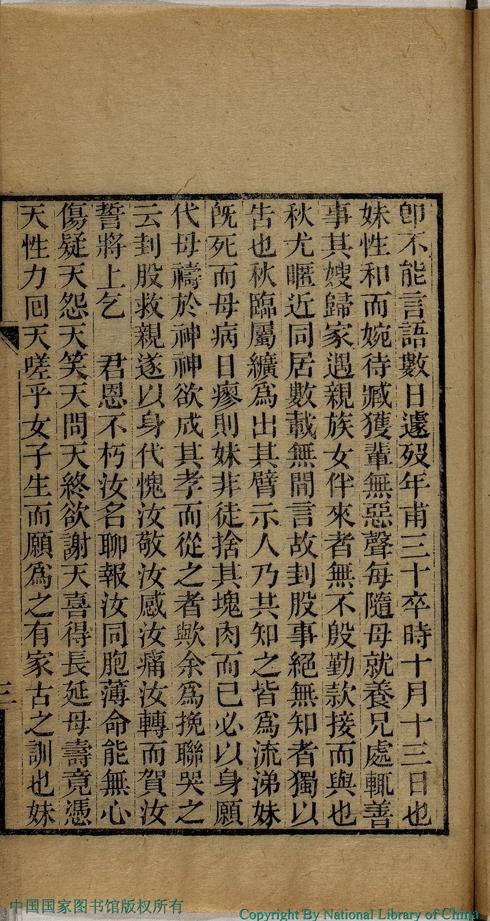 卽不能言語數日遽歿年甫三十卒時十月十三日也
妹性和而婉待臧獲輩無惡聲每隨母就養兄處輒善
事其嫂歸家遇親族女伴來者無不殷勤款接而與也
秋尤暱近同居數載無閒言故刲股事絕無知者獨以
告也秋臨屬纊爲出其臂示人乃共知之皆爲流涕妹
旣死而母病日瘳則妹非徒捨其塊肉而已必以身願
代母禱於神神欲成其孝而從之者歟余爲挽聯哭之
云刲股救親遂以身代愧汝敬汝感汝痛汝轉而賀汝
誓將上乞 君恩不朽汝名聊報汝同胞薄命能無心
傷疑天怨天笑天問天終欲謝天喜得長延母壽竟憑
天性力囘天嗟乎女子生而願爲之有家古之訓也妹
三
中国国家图书馆版权所有
Copyright By National Library of China